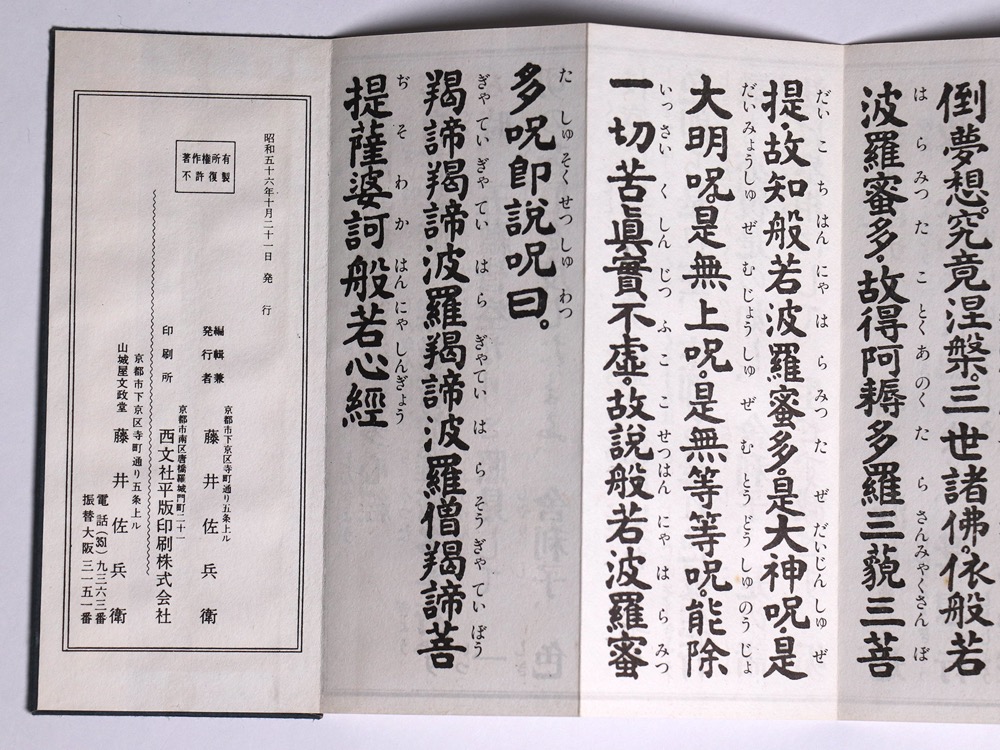 倒夢想。究竟涅槃。三世諸佛。依般若
は ら みつ た こ とく あ のく た ら さんみゃくさん ぼ
波羅蜜多。故得阿耨多羅三藐三菩
だい こ ち はん にゃ は ら みつ た ぜ だいじん しゅ ぜ
提故知般若波羅蜜多。是大神呪。是
だい みょうしゅ ぜ む じょう しゅ ぜ む とう どう しゅ のう じょ
大明呪。是無上呪。是無等等呪。能除
いっ さい く しん じつ ふ こ こ せつ はん にゃ は ら みつ
一切苦眞實不虛。故說般若波羅蜜
た しゅ そく せつ しゅ わつ
多呪卽說呪曰。
ぎゃ てい ぎゃ てい は ら ぎゃてい は ら そう ぎゃ てい ぼう
羯諦羯諦波羅羯諦波羅僧羯諦菩
ぢ そ わ か はん にゃ しんぎょう
提薩婆訶般若心經
昭和五十六年十月二十一日 発行
著作権所有
不許復製
編輯兼
発行者
京都市下京区寺町通り五条上ル
藤井佐兵衛
印刷所
京都市南区唐橋羅城門町二十一
西文社平版印刷株式会社
京都市下京区寺町通り五条上ル
山城屋文政堂 藤井佐兵衛
電話(351)九三六三番
振替大阪三一五一番